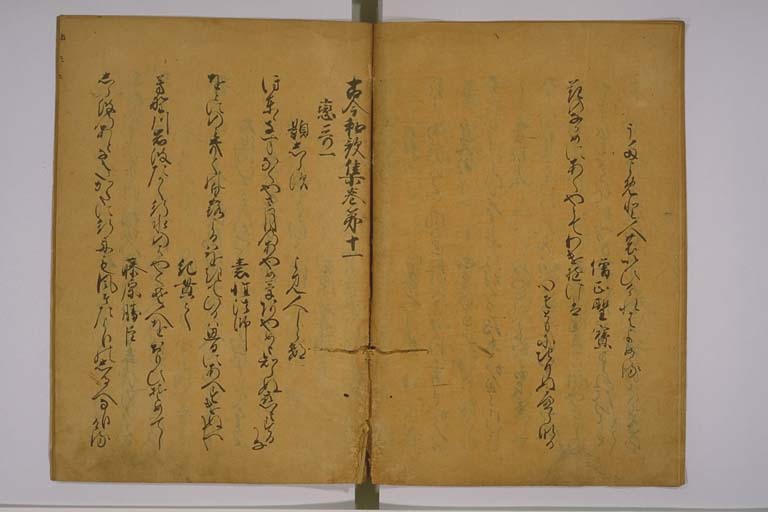 僧正聖寳
花のなかめにあくやとてわけゆけは
心そともにちりぬへらなる
古今和歌集巻第十一
戀哥一
題しらす
よみ人しらす
ほとゝきすなくやさ月のあやめ草あやめも知ぬ恋もする
かな
素性法師
をとにのみきくの白露よるはをきてひるは思ひにあへすけぬへし
紀貫之
吉野川岩波たかく行水のはやくそ人を思ひそめてし
藤原勝臣
しら波のあとなきかたに行舟も風そたよりのしるへなりける